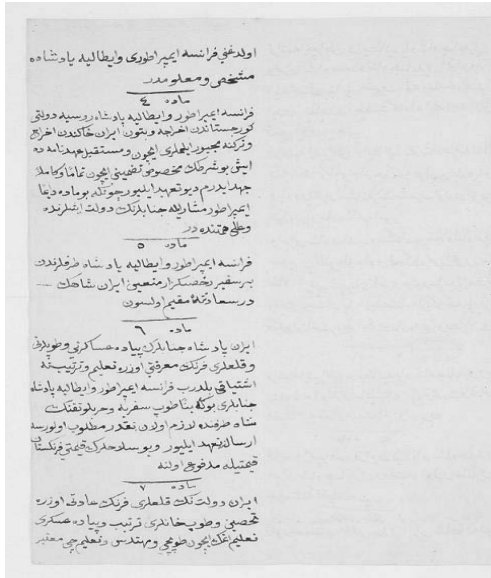 اولدغنی فرانسه ایمپراطوری وایطالیه پادشاهه
مشخص ومعلومدر
ماده ٤
فرانسه ایمپراطور وایطالیه پادشاه روسیه دولتی
کورجستاندن اخراجه وبتون ایران خاکندن اخراج
وترکنه مجبور ایلملری ایچون ومستقبل عهدنامه ده
ایش بو شرطک مخصوص تضمینی ایچون تماما وکاملا
جهد ایدرم دیو تعهد ایلیور چونکه بو ماده دیما
ایمپراطور مشار الیه جنابلرنک دولت ایشلرنده
وعالی همتنده در
ماده ٥
فرانسه ایمپراطور وایطالیه پادشاه طرفلرندن
بر سفیر منصبی ایران شاهنک
در سعادتنه مقیم اولسون
ماده ٦
ایران پادشاه جنابلری پیاده عساکرنی وطوپلرنی
وقلعلری فرنک معرفتی اوزره تعلیم وترتیبنه
اشتیاقی فرانسه ایمپراطور وایطالیه پادشاه
جنابلری بوکا بناء طوپ سفریه وحربلو تفنک
شاه طرفنده لازم اولدن نقدر مطلوب اولورسه
ارسالنه تعهد ایلیور وبو سلاحلرک قیمتی فرنکستان
قیمتیله مدفوع اولنه
ماده ٧
ایران دولتنک قلعلری فرنک عادتی اوزره
تحصینی وطوپخانلری ترتیب وپیاده عسکری
تعلیم اتمک ایچون طوپچی ومهندس وتعلیمجی معتبر